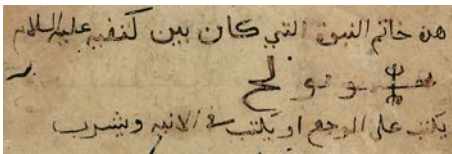 هذه خاتم النبوة التي كان بين كتفيه عليه السلام
يكتب على الوجع او يكتب في الانيه ويشرب